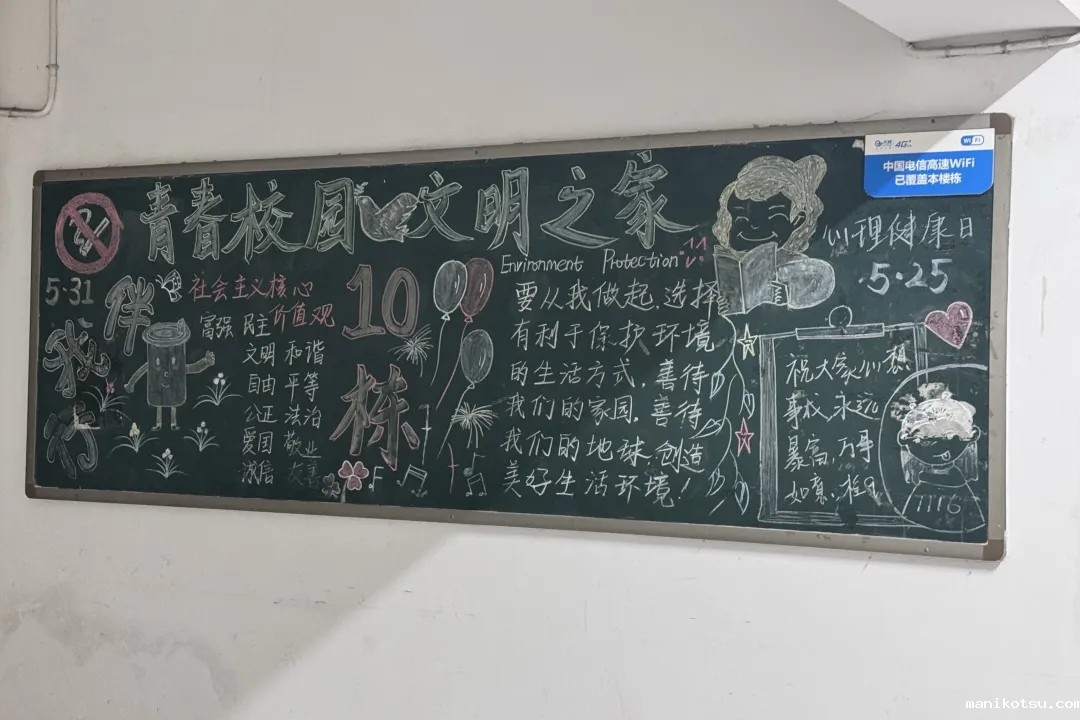 青春校园 文明之家
5·31
伴我行
社会主义核心
价值观
富强 民主
文明 和谐
自由 平等
公正 法治
爱国 敬业
诚信 友善
10栋
Environment Protection
要从我做起,选择
有利于保护环境
的生活方式,善待
我们的家园,善待
我们的地球,创造
美好生活环境!
中国电信高速WiFi
已覆盖本楼栋
4G
WiFi
心理健康日
5·25
祝大家心想
事成,永远
暴富,万事
如意
1116
manikotsu.com